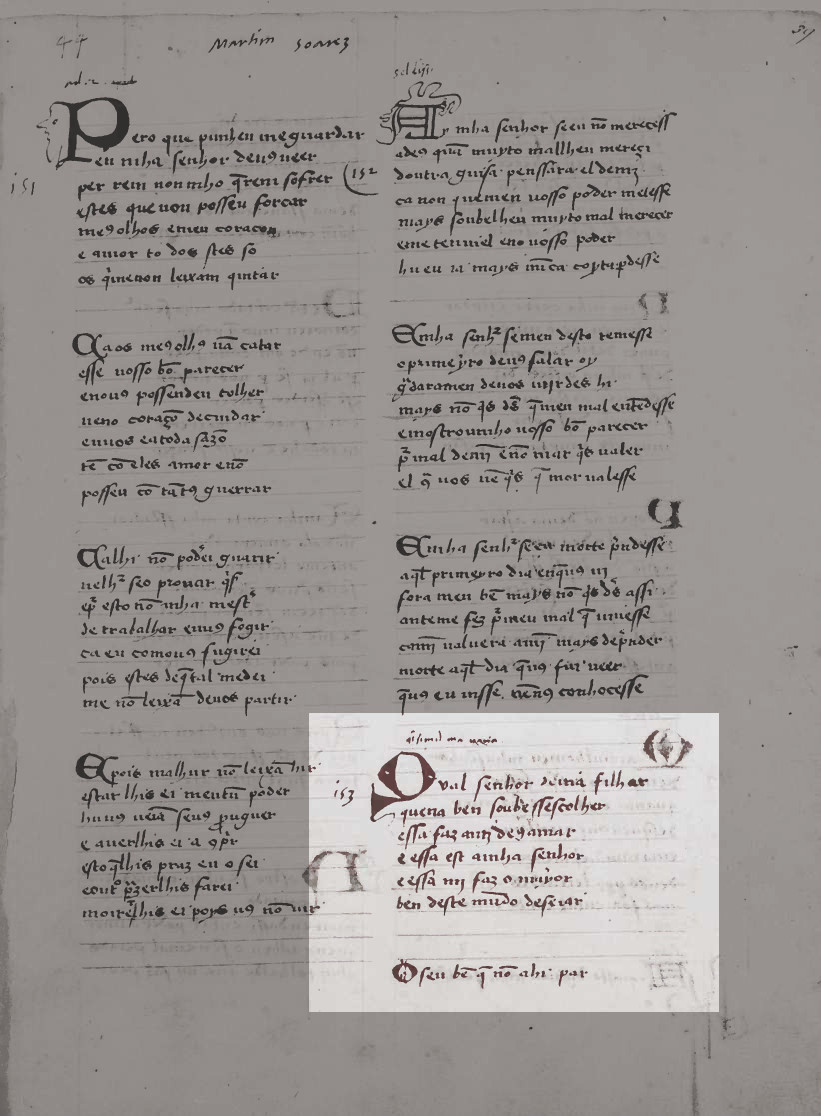 44
Martim soarez
Pero que punhey me guardar
eu mha senhor de uos ueer
per rem non mho q̃rem sofrer
estes que non posseu forcar
me9 olhos e meu coracon
e amor to dos stes so
os q̃ me non leixam quitar
Ca os me9 olh9 uã catar
esse uosso bõ parecer
e non9 possenden tolher
neno coraçõ de cuidar
en uos e a toda sazõ
tẽ cõ eles amor e nõ
posseu cõ tãt9 guerrar
Ca lhi nõ poderei guarir
nelh
seo prouar q̃s
e esto nõ mha mester
de trabalhar en u9 fogir
ca eu com o u9 fugirei
pois estes de q̃ tal medei
me nõ leixã de uos partir
E pois malhur nõ leixã hir
estar lhis ei mentũ poder
hu u9 ueiã seu9 prouguer
e auer lhis ei a
esto q̃ lhis praz eu o sei
e outº prazer lhis farei
moirer lhis ei poys u9 nõ uir
151
152
Ay mha senhor se eu nõ mereçess
a de9 quã muyto mal lheu mereçi
doutra guisa penssara el de mi
ca non que men uosso poder metesse
mays soube lheu muyto mal merecer
e me teu mel eno uosso poder
hu eu ia mays nũca coyta perdesse
E mha senhr se men desto temesse
o primeyro de u9 falar oy
guardaramen de uos uijrdes hi
mays nõ q̃s ds̃ q̃ men mal entẽdesse
e mostrou mho uosso bõ parecer
pr̃ mal de mi e nõ mar q̃s ualer
el 9 uos nẽ q̃s q̃ mor ualesse
E mha senhr se eu morte prẽdesse
aql̃ primeyro dia en que u9 ui
fora meu bẽ mays nõ q̃s ds̃ assi
ante me fez pr̃ meu mal q̃ uiuesse
ca mi ualuera a mi mays de prẽder
morte aql̃ dia q̃ u9 fui ueer
q̃ u9 eu uisse nẽ u9 conhocesse
153
Qual senhor deuia filhar
quen a ben soubessescolher
essa faz a mi de9 amar
e essa est a mha senhor
e essa mi faz o mayor
ben deste mũdo deseiar
O seu bẽ q̃ nõ a hi par